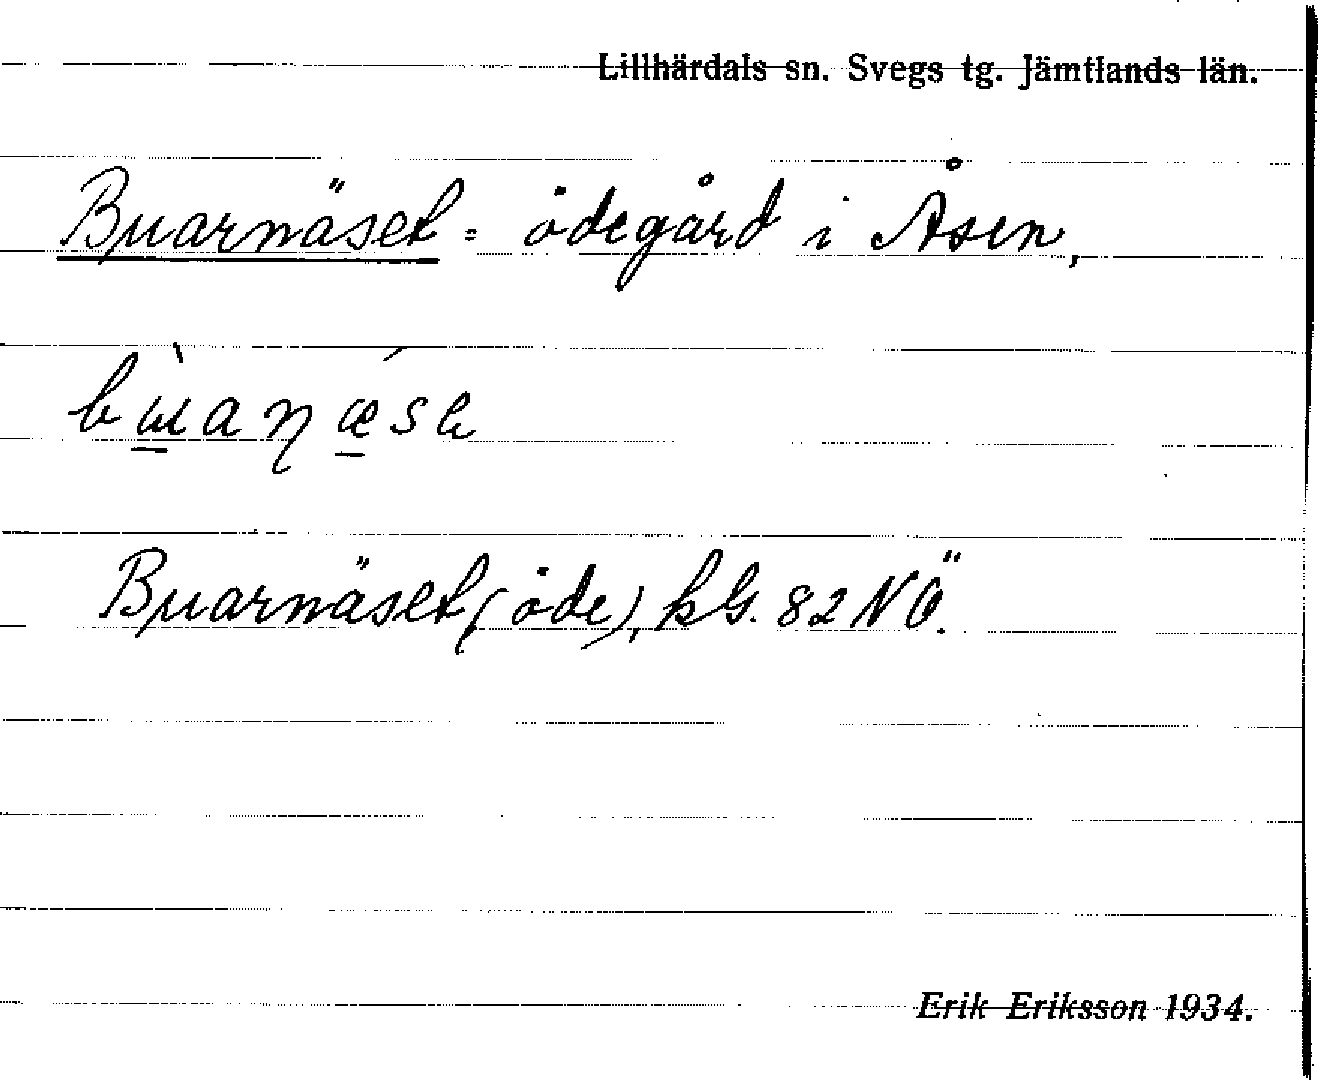 Lillhärdals sn. Svegs tg. Jämtlands län.
Buarnäset = ödegård i Åsen,
Buarnäset (öde), kG. 82 NÖ.
Erik Eriksson 1934.